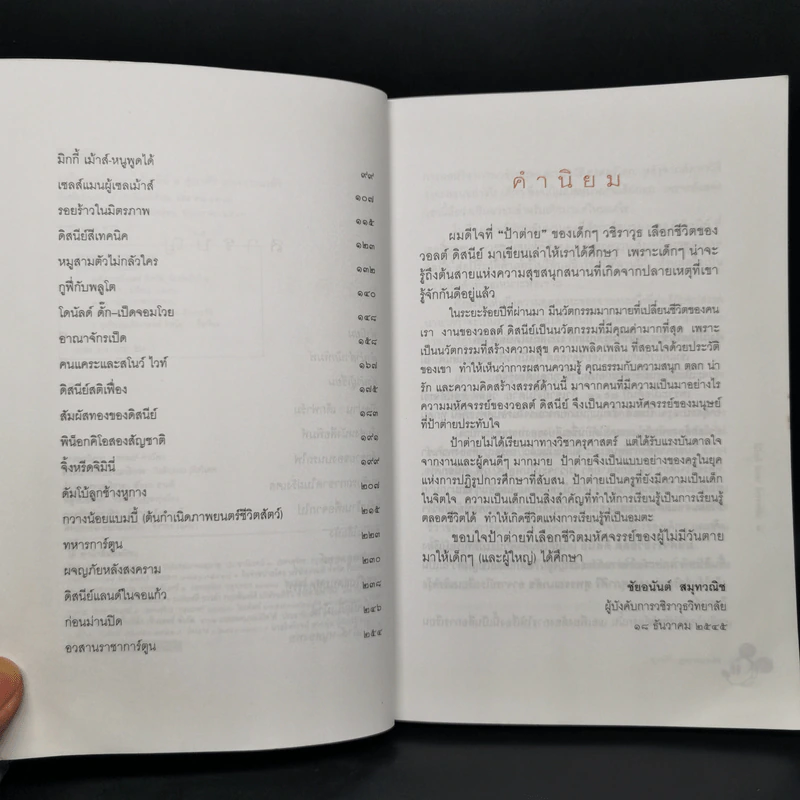 มิกกี้ เม้าส์-หนูพูดได้ ๙๙
เซลส์แมนผู้เซลเม้าส์ ๑๐๗
รอยร้าวในมิตรภาพ ๑๑๕
ดิสนีย์สีเทคนิค ๑๒๓
หมูสามตัวไม่กลัวใคร ๑๓๒
กูฟี่กับพลูโต ๑๔๐
โดนัลด์ ดั๊ก-เป็ดจอมโวย ๑๔๘
อาณาจักรเป็ด ๑๕๘
คนแคระและสโนว์ ไวท์ ๑๖๗
ดิสนีย์สติเฟื่อง ๑๗๕
สัมผัสทองของดิสนีย์ ๑๘๓
พิน็อกคิโอสองสัญชาติ ๑๙๑
จิ้งหรีดจิมินี่ ๑๙๙
ดัมโบ้ลูกช้างหูกาง ๒๐๗
กวางน้อยแบมบี้ (ต้นกำเนิดภาพยนตร์ชีวิตสัตว์) ๒๑๕
ทหารการ์ตูน ๒๒๓
ผจญภัยหลังสงคราม ๒๓๐
ดิสนีย์แลนด์ในจอแก้ว ๒๓๘
ก่อนม่านปิด ๒๔๖
อวสานราชาการ์ตูน ๒๕๔
คำนิยม
ผมดีใจที่ “ป้าต่าย” ของเด็กๆ วชิราวุธ เลือกชีวิตของ
วอลต์ ดิสนีย์ มาเขียนเล่าให้เราได้ศึกษา เพราะเด็กๆ น่าจะ
รู้ถึงต้นสายแห่งความสุขสนุกสนานที่เกิดจากปลายเหตุที่เขา
รู้จักกันดีอยู่แล้ว
ในระยะร้อยปีที่ผ่านมา มีนวัตกรรมมากมายที่เปลี่ยนชีวิตของคน
เรา งานของวอลต์ ดิสนีย์เป็นนวัตกรรมที่มีคุณค่ามากที่สุด เพราะ
เป็นนวัตกรรมที่สร้างความสุข ความเพลิดเพลิน ที่สอนใจด้วยประวัติ
ของเขา ทำให้เห็นว่าการผสานความรู้ คุณธรรมกับความสนุก ตลก น่า
รัก และความคิดสร้างสรรค์ด้านนี้ มาจากคนที่มีความเป็นมาอย่างไร
ความมหัศจรรย์ของวอลต์ ดิสนีย์ จึงเป็นความมหัศจรรย์ของมนุษย์
ที่ป้าต่ายประทับใจ
ป้าต่ายไม่ได้เรียนมาทางวิชาครุศาสตร์ แต่ได้รับแรงบันดาลใจ
จากงานและผู้คนดีๆ มากมาย ป้าต่ายจึงเป็นแบบอย่างของครูในยุค
แห่งการปฏิรูปการศึกษาที่สับสน ป้าต่ายเป็นครูที่ยังมีความเป็นเด็ก
ในจิตใจ ความเป็นเด็กเป็นสิ่งสำคัญที่ทำให้การเรียนรู้เป็นการเรียนรู้
ตลอดชีวิตได้ ทำให้เกิดชีวิตแห่งการเรียนรู้ที่เป็นอมตะ
ขอบใจป้าต่ายที่เลือกชีวิตมหัศจรรย์ของผู้ไม่มีวันตาย
มาให้เด็กๆ (และผู้ใหญ่) ได้ศึกษา
ชัยอนันต์ สมุทวณิช
ผู้บังคับการวชิราวุธวิทยาลัย
๑๘ ธันวาคม ๒๕๔๕